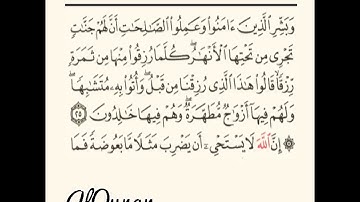 وَبَشِّرِ ٱلَّذِينَ ءَامَنُوا۟ وَعَمِلُوا۟ ٱلصَّـٰلِحَـٰتِ أَنَّ لَهُمْ جَنَّـٰتٍ
تَجْرِى مِن تَحْتِهَا ٱلْأَنْهَـٰرُ ۖ كُلَّمَا رُزِقُوا۟ مِنْهَا مِن ثَمَرَةٍ
رِّزْقًا ۙ قَالُوا۟ هَـٰذَا ٱلَّذِى رُزِقْنَا مِن قَبْلُ ۖ وَأُتُوا۟ بِهِۦ مُتَشَـٰبِهًا ۖ
وَلَهُمْ فِيهَآ أَزْوَٰجٌ مُّطَهَّرَةٌ ۖ وَهُمْ فِيهَا خَـٰلِدُونَ ٢٥
۞ إِنَّ ٱللَّهَ لَا يَسْتَحْىِۦٓ أَن يَضْرِبَ مَثَلًا مَّا بَعُوضَةً فَمَا
AlQuran